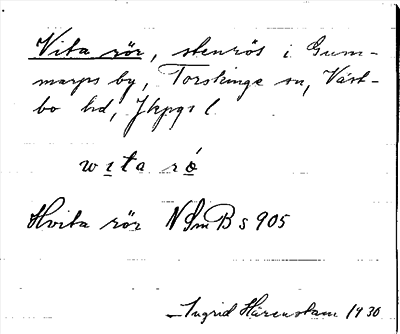 Vita rör, stenrös i Gum-
marps by, Torskinge sn, Väst-
bo hd, Jkpgs l
wita ró
Hvita rör NSmB s 905
Ingrid Härenstam 1930